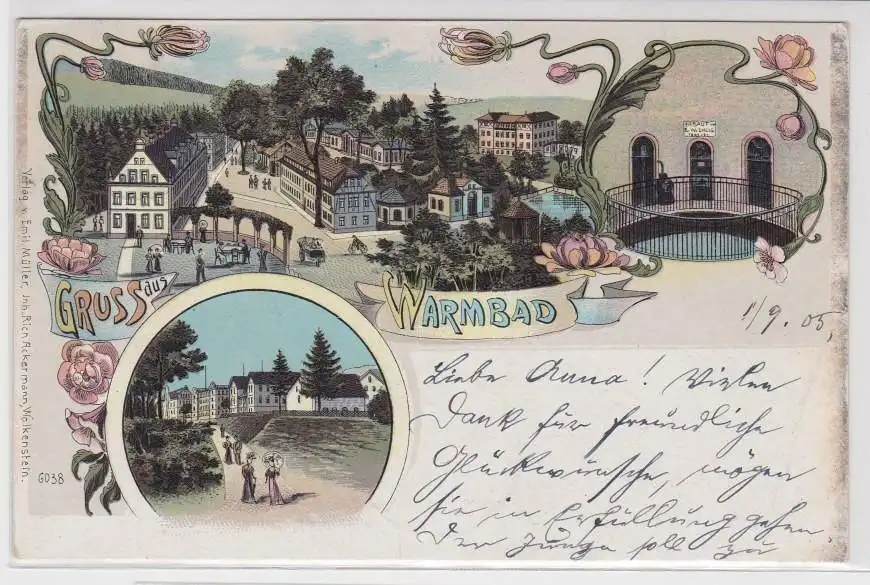 GRUSS aus WARMBAD
11/9. 05,
Liebe Anna! Vielen
Dank für freundliche
Glückwünsche, mögen
sie in Erfüllung gehen
Der Junge soll zu
Verlag v. Emil Müller, Inh. Rich. Ackermann, Wolkenstein.
6038